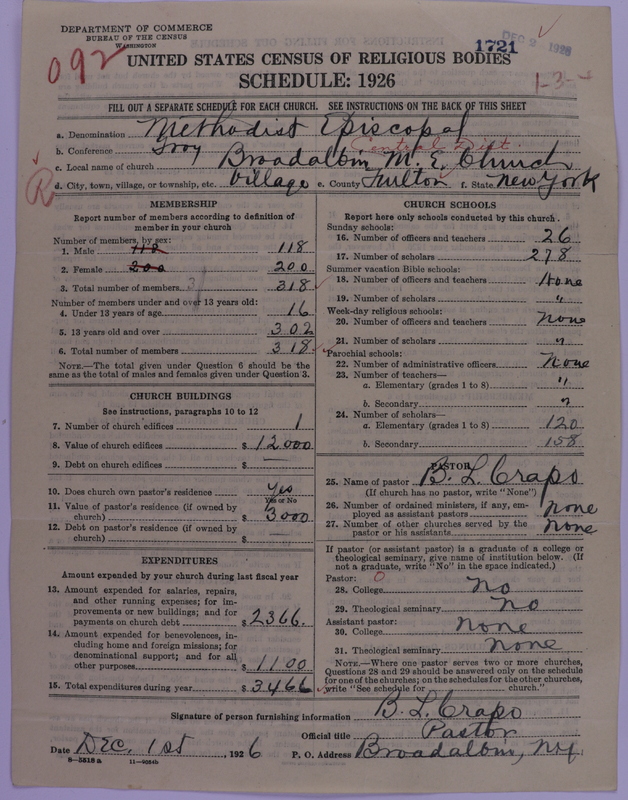 DEPARTMENT OF COMMERCE
BUREAU OF THE CENSUS
WASHINGTON
092
1721
DEC 2 1926
UNITED STATES CENSUS OF RELIGIOUS BODIES
SCHEDULE: 1926
1-3-
FILL OUT A SEPARATE SCHEDULE FOR EACH CHURCH. SEE INSTRUCTIONS ON THE BACK OF THIS SHEET
a. Denomination Methodist Episcopal
b. Conference Troy Central Dist.
c. Local name of church Broadalbin M. E. Church
R
d. City, town, village, or township, etc. Village e. County Fulton f. State New York
MEMBERSHIP
Report number of members according to definition of member in your church
Number of members, by sex:
1. Male 118 118
2. Female 200 200
3. Total number of members 318
Number of members under and over 13 years old:
4. Under 13 years of age 16
5. 13 years old and over 302
6. Total number of members 318
NOTE.—The total given under Question 6 should be
same as the total of males and females given under Question 3.
CHURCH BUILDINGS
See instructions, paragraphs 10 to 12
7. Number of church edifices 1
8. Value of church edifices $ 12000
9. Debt on church edifices $ —
10. Does church own pastor's residence Yes
Yes or No
11. Value of pastor's residence (if owned by
church) $ 3000
12. Debt on pastor's residence (if owned by
church) $ —
EXPENDITURES
Amount expended by your church during last fiscal year
13. Amount expended for salaries, repairs,
and other running expenses; for im-
provements or new buildings; and for
payments on church debt $ 2366.
14. Amount expended for benevolences, in-
cluding home and foreign missions; for
denominational support; and for all
other purposes $ 1100
15. Total expenditures during year $ 3466
CHURCH SCHOOLS
Report here only schools conducted by this church.
Sunday schools:
16. Number of officers and teachers 26
17. Number of scholars 278
Summer vacation Bible schools:
18. Number of officers and teachers None
19. Number of scholars "
Week-day religious schools:
20. Number of officers and teachers None
21. Number of scholars "
Parochial schools:
22. Number of administrative officers None
23. Number of teachers—
a. Elementary (grades 1 to 8) "
b. Secondary "
24. Number of scholars—
a. Elementary (grades 1 to 8) 120
b. Secondary 158
PASTOR
25. Name of pastor B. L. Crapo
(If church has no pastor, write "None")
26. Number of ordained ministers, if any, em-
ployed as assistant pastors None
27. Number of other churches served by the
pastor or his assistants None
If pastor (or assistant pastor) is a graduate of a college or
theological seminary, give name of institution below. (If
not a graduate, write "No" in the space indicated.)
Pastor: 0
28. College No
29. Theological seminary No
Assistant pastor:
30. College None
31. Theological seminary None
NOTE.—Where one pastor serves two or more churches,
Questions 28 and 29 should be answered only on the schedule
for one of the churches; on the schedules for the other churches,
write "See schedule for church."
Signature of person furnishing information B. L. Crapo
Official title Pastor
Date Dec. 1st, 1926 P. O. Address Broadalbin, N.Y.
8-5518 a 11-9054b